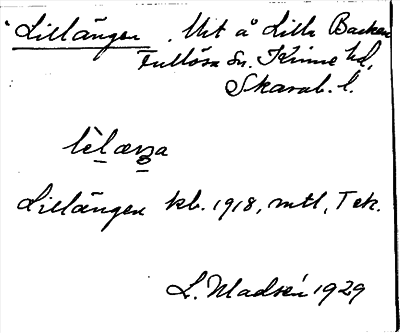 Lillängen. Utt å Lilla Backen
Fullösa Sn. Kinne hd,
Skarab. l.
lèlæŋa
Lillängen kb. 1918, mtl, Tek.
L. Madsén 1929